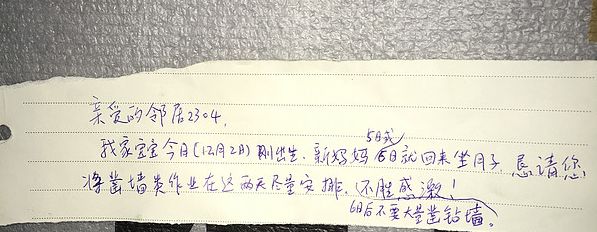 亲爱的邻居2304,
我家宝宝今日(12月2日)刚出生.新妈妈5日或6日就回来坐月子.恳请您
将凿墙类作业在这两天尽量安排,不胜感激!
6日后不要大量凿钻墙。